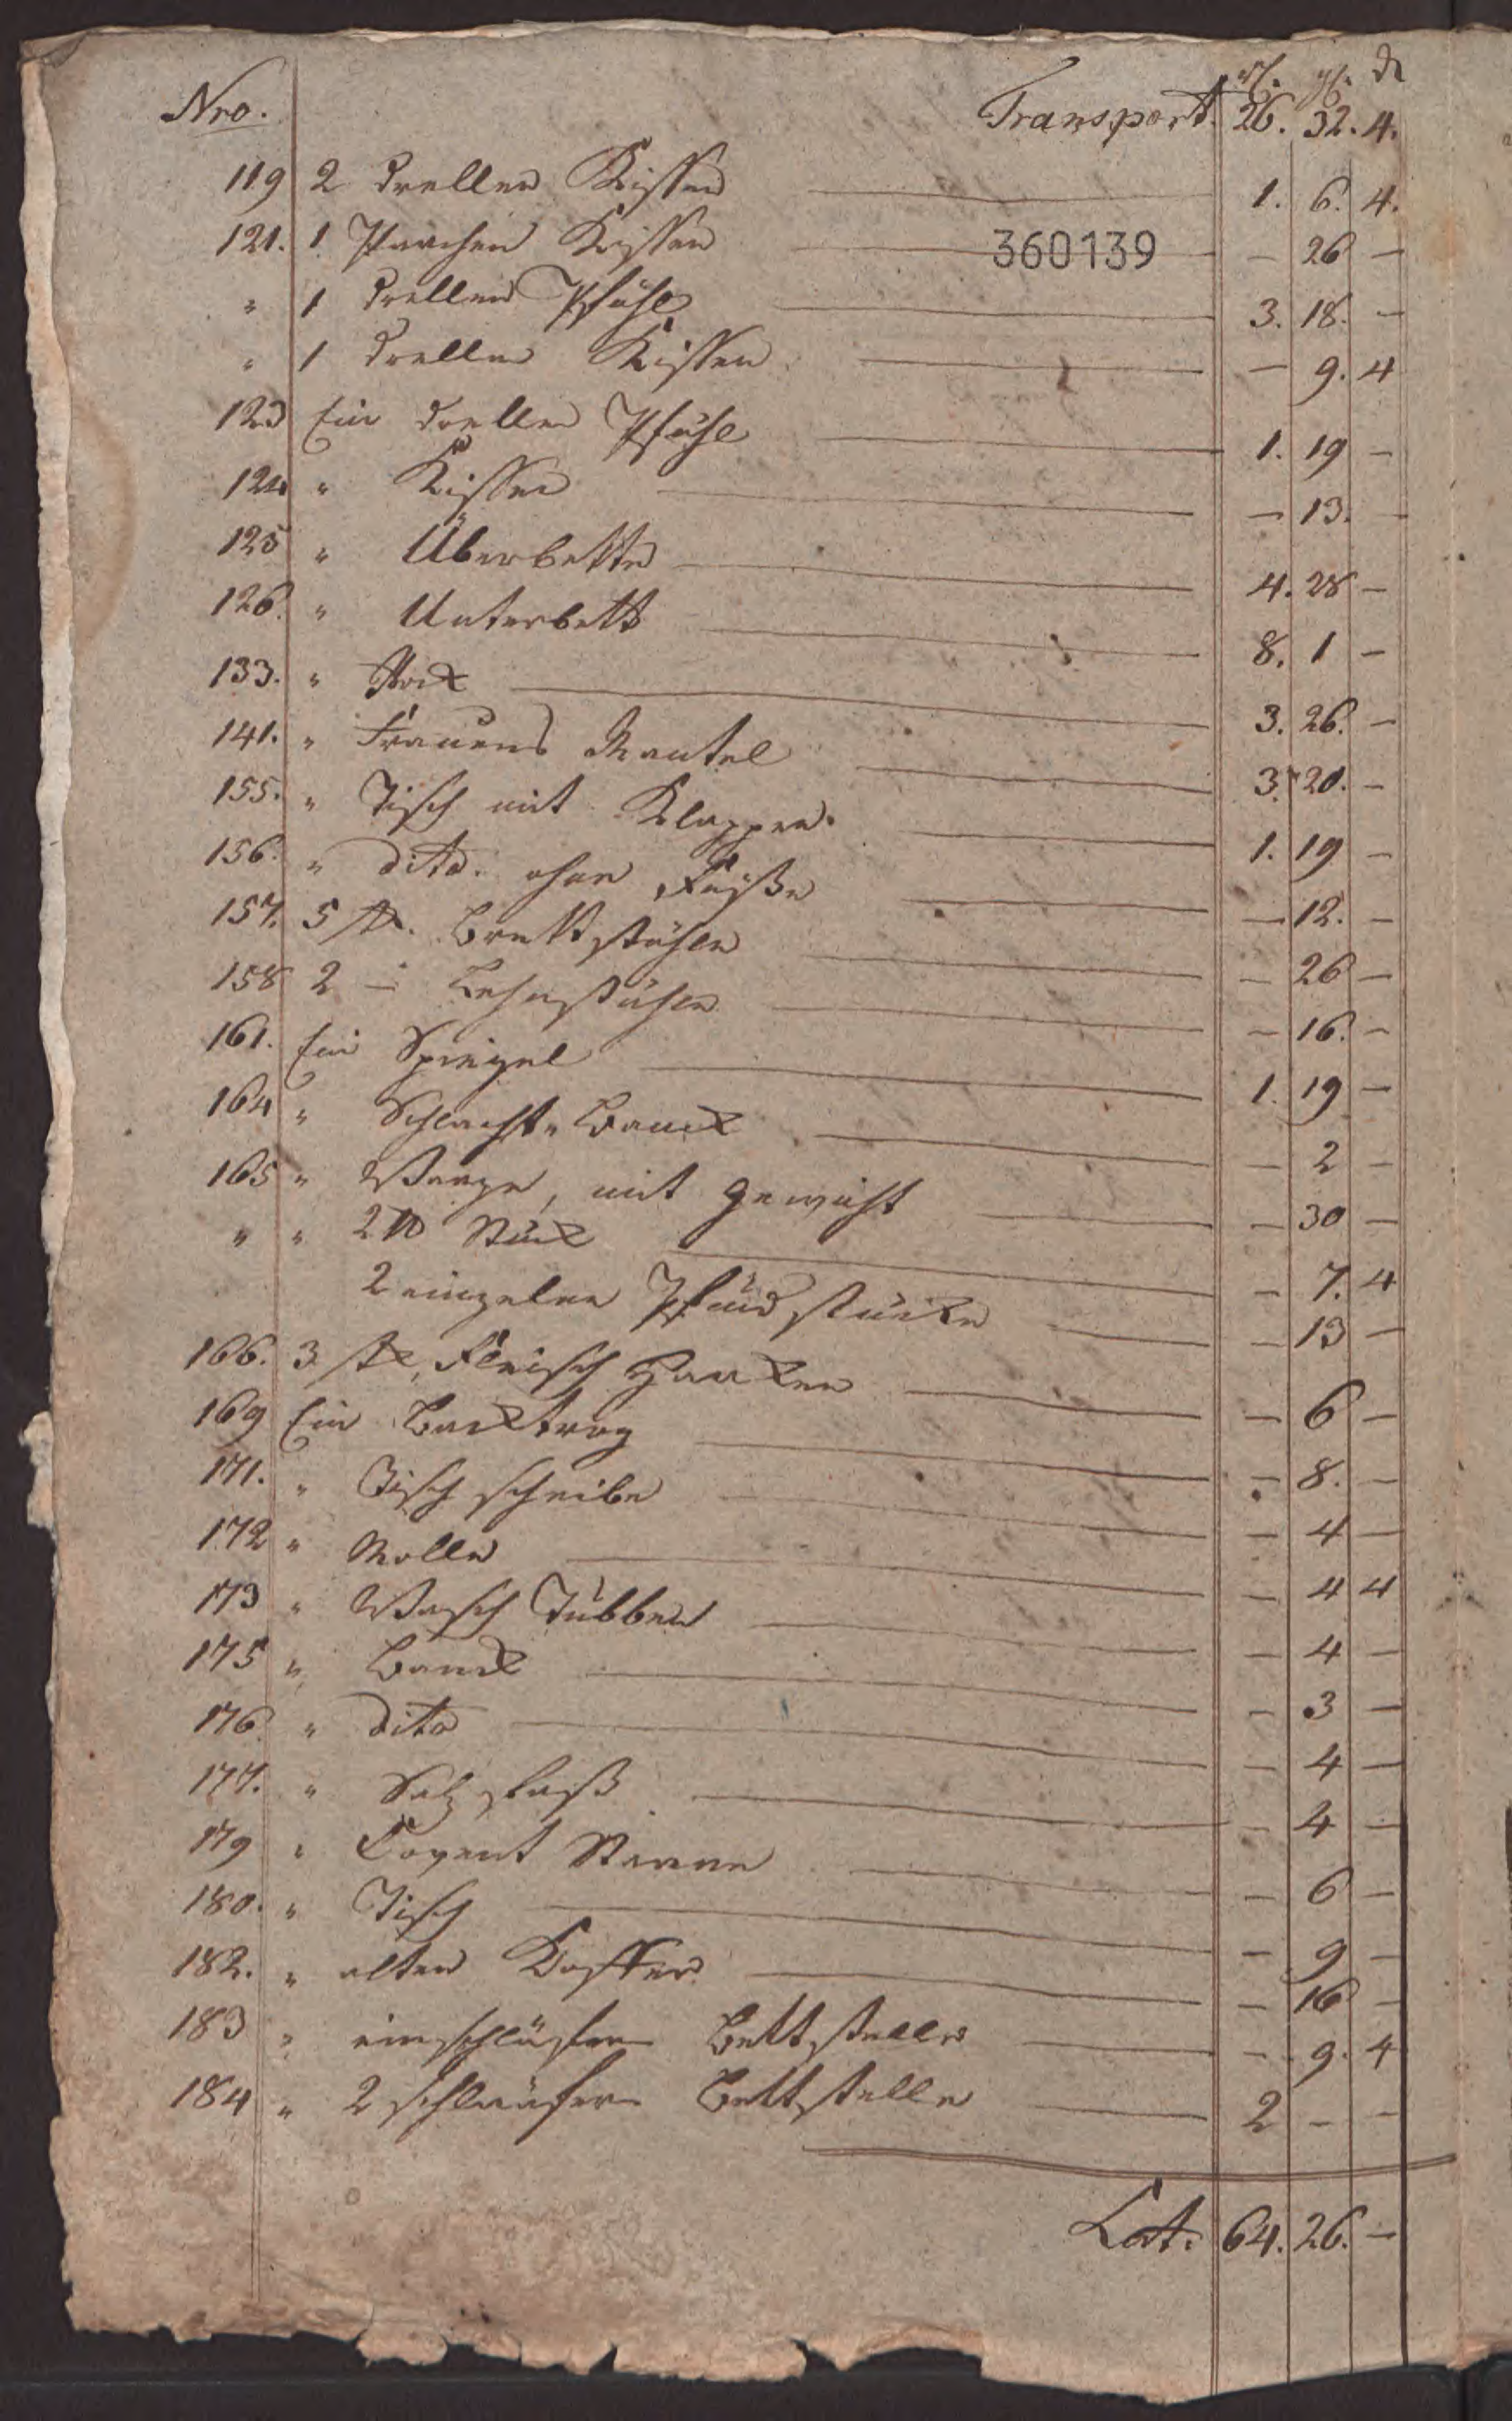 Nro. Transport. rl. gl. d
26. 32. 4.
119 2 drellen Kissen 1. 6. 4.
121. 1 Parchen Kissen 360139 — 26 —
" 1 drellen Pfühl 3. 18. —
" 1 drellen Kissen — 9. 4
123 Ein drellen Pfühl 1. 19 —
124 " Kissen — 13. —
125 " Überbette 4. 28 —
126. " Unterbett 8. 1 —
133. " Rock 3. 26. —
141. " Frauens Mantel 3. 20. —
155. " Tisch mit Klappen. 1. 19 —
156. " dito. ohne Füße — 12. —
157. 5 st. Brettstühle — 26 —
158 2 — Lehnstühle — 16. —
161. Ein Spiegel 1. 19 —
164 " Schlacht-Banck — 2 —
165 " Waage, mit Gewicht — 30 —
" " 2 ℔ Stück — 7. 4
2 einzelne Pfund stücke — 13 —
166. 3 st. Fleisch Haaken — 6 —
169 Ein Backtrog — 8. —
171. " Tisch scheibe — 4 —
172 " Molle — 4 4
173 " Wasch Tubben — 4 —
175 " Banck — 3 —
176. " dito — 4 —
177. " Salz faß — 4 —
179 " Covent Stanne — 6 —
180. " Tisch — 9 —
182. " alten Koffer — 16 —
183 " einschläfern Bettstelle — 9. 4
184 " 2 schläufern Bettstelle 2 — —
Lat. 64. 26. —